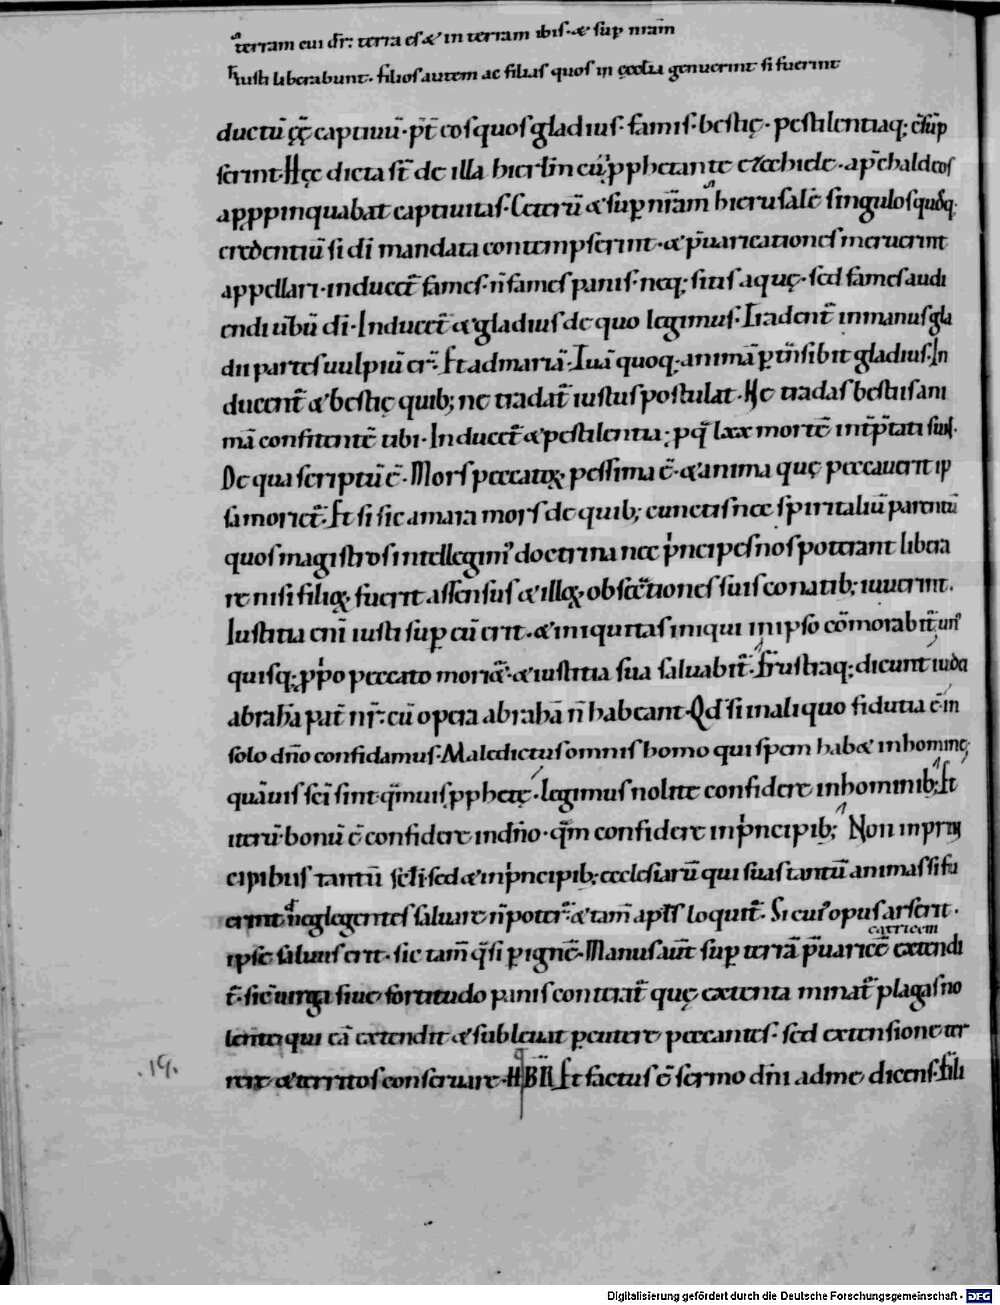 terram cui dr̄: terra es & in terram ibis· & sup nr̄am
iusti liberabunt· filios autem ac filias quos in eccl̄ia genuerint si fuerint
ductū ęę captiuū· p̄t eos quos gladius· famis· bestię· pestilentiaq; c̄sūp
serint· Hęc dicta st̄ de illa hierl̄m cū pphetante ezechiele· ap̄ chaldeos
appropinquabat captiuitas· Ceterū & sup nr̄am hierusalē singulosquosq;
credentiū si dī mandata contempserint· & p̄uaricationes meruerint
appellari· inducet̄ fames· n̄ fames panis· neq; sitis aquę· sed fames audi
endi uerbū dī· Inducet̄ & gladius de quo legimus· Tradent̄ in manus gla
dii partes uulpiū er̄· Et ad mariā· Tuā quoq; animā p̄transibit gladius· In
ducent̄ & bestię quib; ne tradat̄ iustus postulat· Ne tradas bestiis ani
mā confitentē tibi· Inducet̄ & pestilentia; p q̄ lxx mortē int̄p̄tati sunt·
De qua scriptū ē· Mors peccatoꝝ pessima ē· & anima quę peccauerit ip
sa moriet̄· Et si sic amara mors de quib; cunctis nec spiritaliū parentū
quos magistros intellegim' doctrina nec p̄ncipes nos poterant libera
re nisi filioꝝ fuerit assensus & illoꝝ obsecrationes suis conatib; iuuerint·
Iustitia eni iusti sup eū erit· & iniquitas iniqui in ipso cōmorabit̄ un'
quisq; p̄ro peccato moriet̄· & iustitia sua saluabit̄· Frustraq; dicunt iudei
abrahā pat̄ nr̄· cū opera abrahā n̄ habeant· Qd̄ si in aliquo fidutia ē in
solo dn̄o confidamus· Maledictus omnis homo qui spem hab& in homine;
quāuis sc̄i sint· q̄muis pphetę· legimus nolite confidere in hominib; Et
iterū· bonū ē confidere in dn̄o· q̄m confidere in p̄ncipib; Non in prin
cipibus tantū scl̄i· sed & in p̄ncipib; ecclesiarū qui suas tantū animas si fu
erint neglegentes saluare n̄ poter̄· & tam̄ ap̄l̄s loquit̄· Si cui' opus arserit·
ipse saluus erit· sic tam̄ q̄si p ignē· Manus aut̄ sup terrā p̄uaricē extendi
catricem
t̄· sic uirga siue fortitudo panis conterat̄ quę extenta minat̄ plagas no
lente qui eā extendit & subleuat pcutere peccantes· sed extensione ter
rere & territos conseruare· HBN Et factus ē sermo dn̄i ad me dicens· fili
.19.
Digitalisierung gefördert durch die Deutsche Forschungsgemeinschaft - DFG